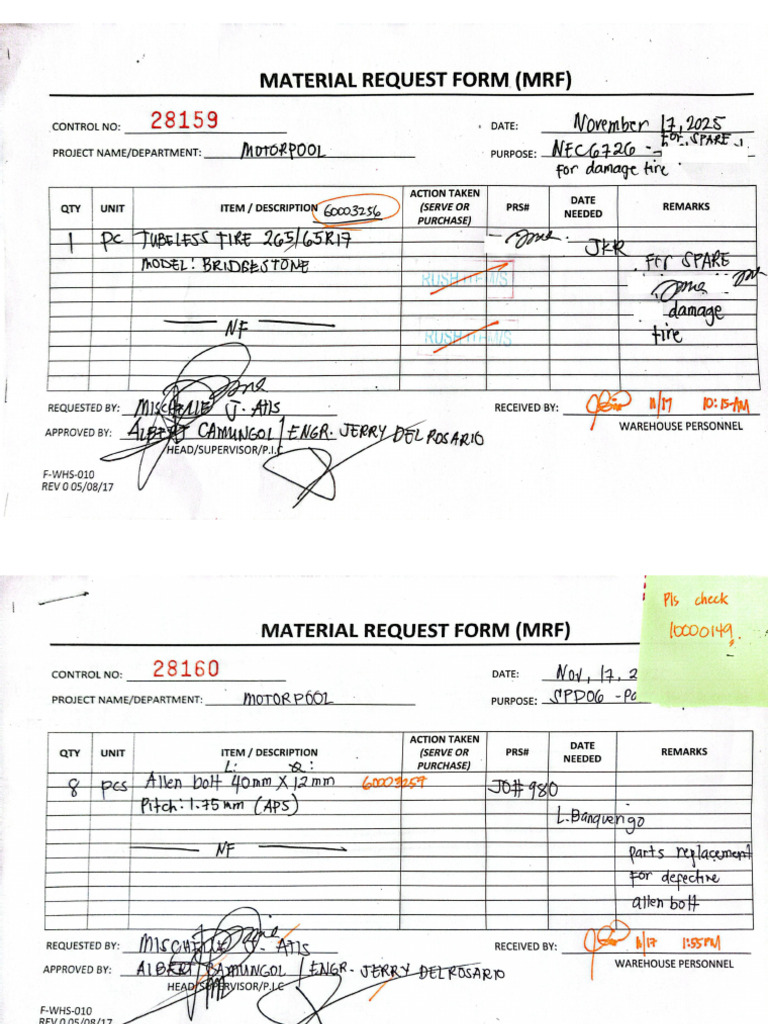 MATERIAL REQUEST FORM (MRF)
CONTROL NO: 28159
DATE: November 17, 2025
PROJECT NAME/DEPARTMENT: MOTORPOOL
PURPOSE: NFC6726 - for SPARE
for damage tire
QTY UNIT ITEM / DESCRIPTION 60003256 ACTION TAKEN (SERVE OR PURCHASE) PRS# DATE NEEDED REMARKS
1 pc TUBELESS TIRE 265/65R17 JKR
MODEL: BRIDGESTONE For SPARE
RUSH ITEMS
damage
NF tire
RUSH ITEMS
REQUESTED BY: MISCHELLE J. ATIS
RECEIVED BY: 11/17 10:15AM
WAREHOUSE PERSONNEL
APPROVED BY: ALBERT CAMUNGOL / ENGR. JERRY DEL ROSARIO
HEAD/SUPERVISOR/P.I.C
F-WHS-010
REV 0 05/08/17
Pls check
10000149.
MATERIAL REQUEST FORM (MRF)
CONTROL NO: 28160
DATE: Nov, 17, 2
PROJECT NAME/DEPARTMENT: MOTORPOOL
PURPOSE: SPD06 -Po
QTY UNIT ITEM / DESCRIPTION ACTION TAKEN (SERVE OR PURCHASE) PRS# DATE NEEDED REMARKS
L: Q:
8 pcs Allen bolt 40mm X 12mm 60003259 JO# 980
Pitch: 1.75mm (APS) L. Banquerigo
NF parts replacement
for defective
allen bolt
REQUESTED BY: MISCHELLE J. ATIS
RECEIVED BY: 11/17 1:55PM
WAREHOUSE PERSONNEL
APPROVED BY: ALBERT CAMUNGOL / ENGR. JERRY DEL ROSARIO
HEAD/SUPERVISOR/P.I.C
F-WHS-010
REV 0 05/08/17